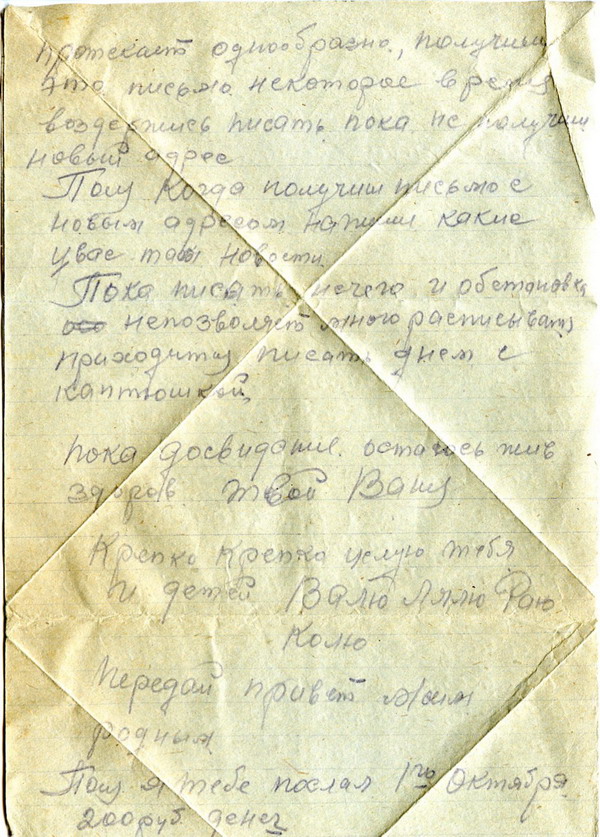 протекает однообразно, получиш
это письмо некоторое время
воздержись писать пока не получиш
новый адрес
Поля когда получиш письмо с
новым адресом напиши какие
увас там новости
Пока писать нечего и обстановка
непозволяет много расписывать
приходится писать днем с
каптюшкой,
пока досвидание. остаюсь жив
здоров твой Ваня
Крепко Крепко целую тебя
и детей Валю Лялю Раю
Колю
Передай привет моим
родным
Поля я тебе послал 1го Октября
200 руб денег